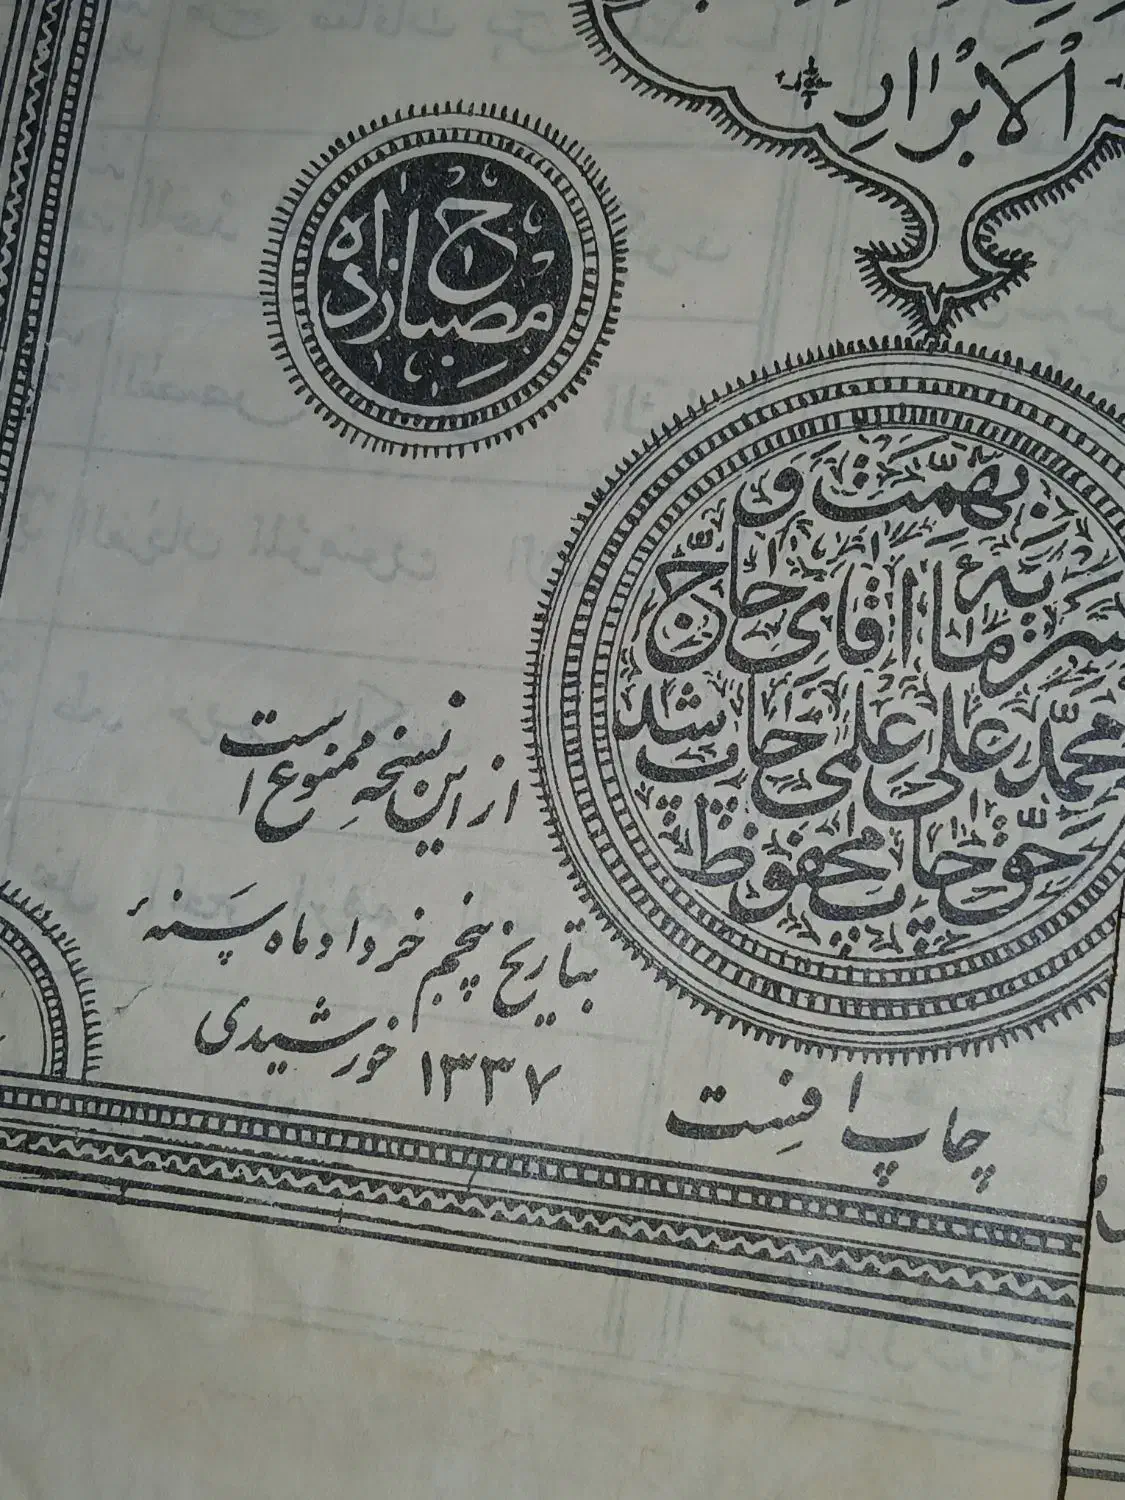 الابرار
ح مصبازاده
بهمت و
سرمایهٔ اقای حاج
محمد علی علمی چاپ شد
حق چاپ محفوظ
از این نسخه ممنوع است
بتاریخ پنجم خرداد ماه سنهٔ
۱۳۳۷ خورشیدی
چاپ افست